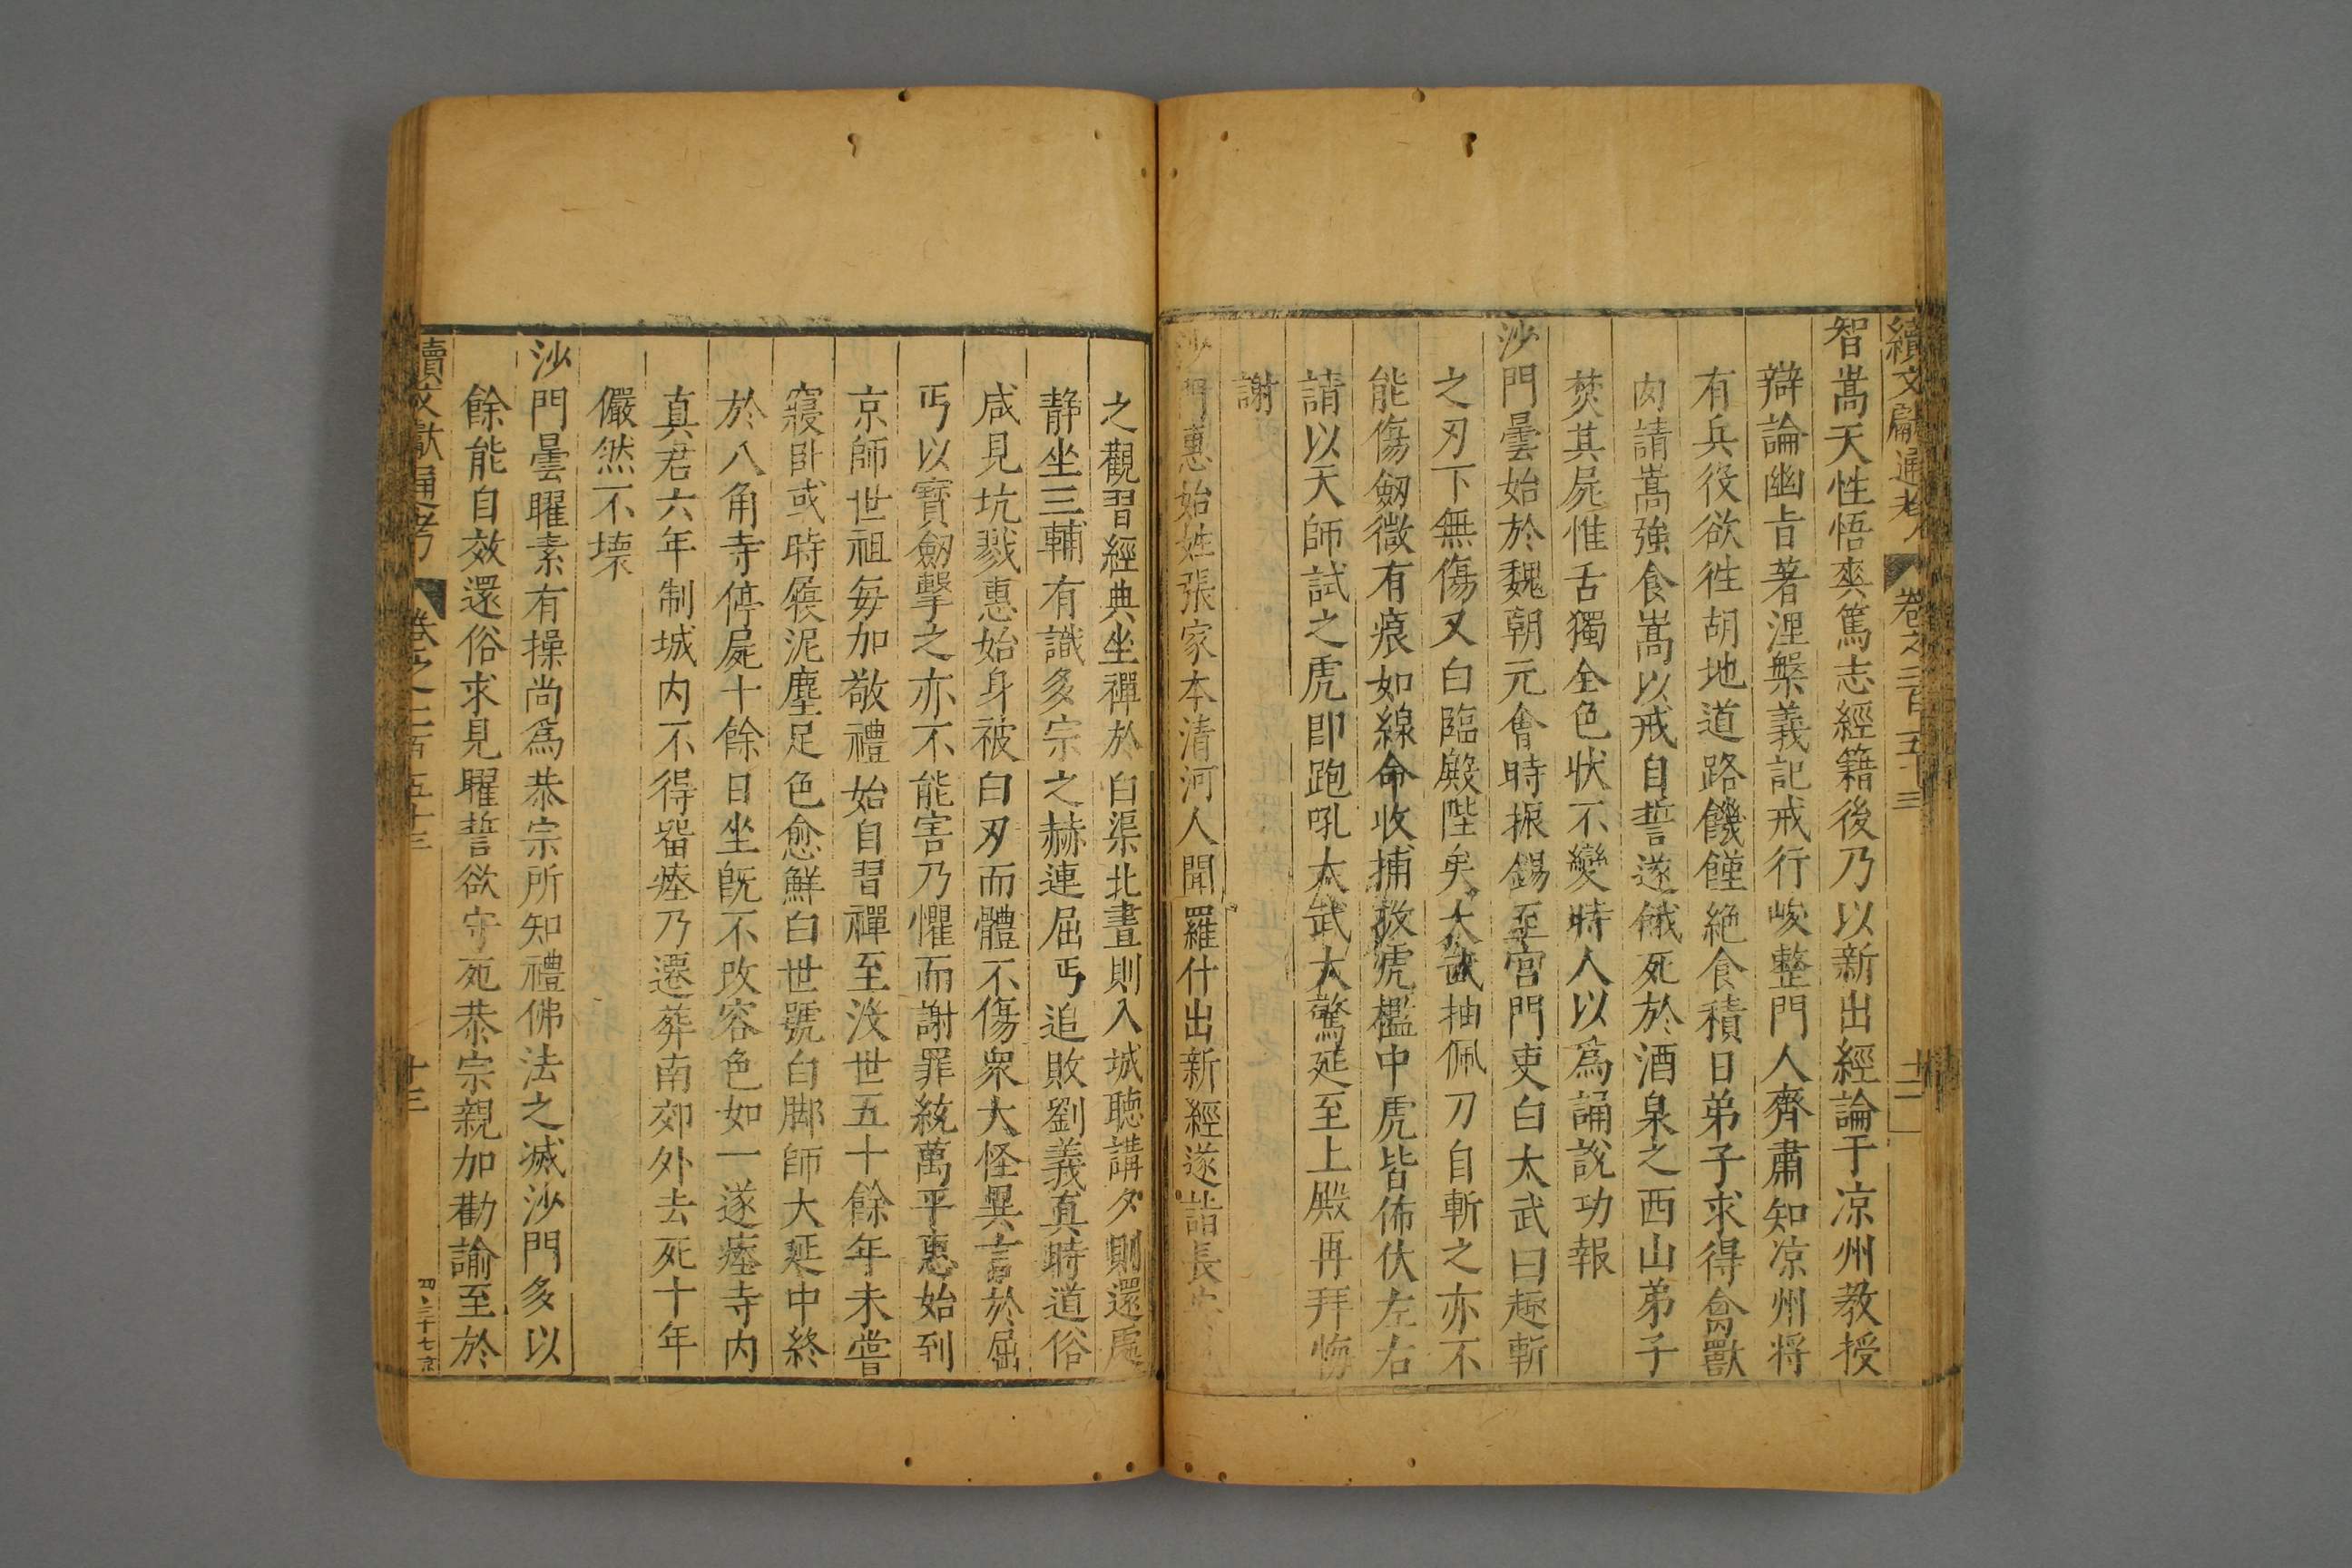 續文獻通考 卷之二百五十三 十二
智嵩天性悟爽篤志經籍後乃以新出經論于凉州教授
辯論幽旨著涅槃義記戒行峻整門人齊肅知凉州将
有兵役欲徃胡地道路饑饉絶食積日弟子求得禽獸
肉請嵩強食嵩以戒自誓遂餓死於酒泉之西山弟子
焚其屍惟舌獨全色状不變時人以為誦說功報
沙門曇始於魏朝元會時振錫至宫門吏白太武曰趣斬
之刃下無傷又白臨殿陛矣太武抽佩刀自斬之亦不
能傷劒微有痕如線命收捕投虎檻中虎皆怖伏左右
請以天師試之虎即跑吼太武大驚延至上殿再拜悔
謝
沙門惠始姓張家本清河人聞羅什出新經遂詣長安
之觀習經典坐禪於白渠北晝則入城聴講夕則還處
静坐三輔有識多宗之赫連屈丐追敗劉義真時道俗
咸見坑戮惠始身被白刃而體不傷衆大怪異言於屈
丐以寳劒擊之亦不能害乃懼而謝罪統萬平惠始到
京師世祖每加敬禮始自習禪至没世五十餘年未嘗
寢卧或時履泥塵足色愈鮮白世號白脚師大延中終
於八角寺停屍十餘日坐既不改容色如一遂瘞寺内
真君六年制城内不得留瘞乃遷葬南郊外去死十年
儼然不壊
沙門曇曜素有操尚為恭宗所知禮佛法之滅沙門多以
餘能自效還俗求見曜誓欲守死恭宗親加勸諭至於
續文獻通考 卷之二百五十三 十三